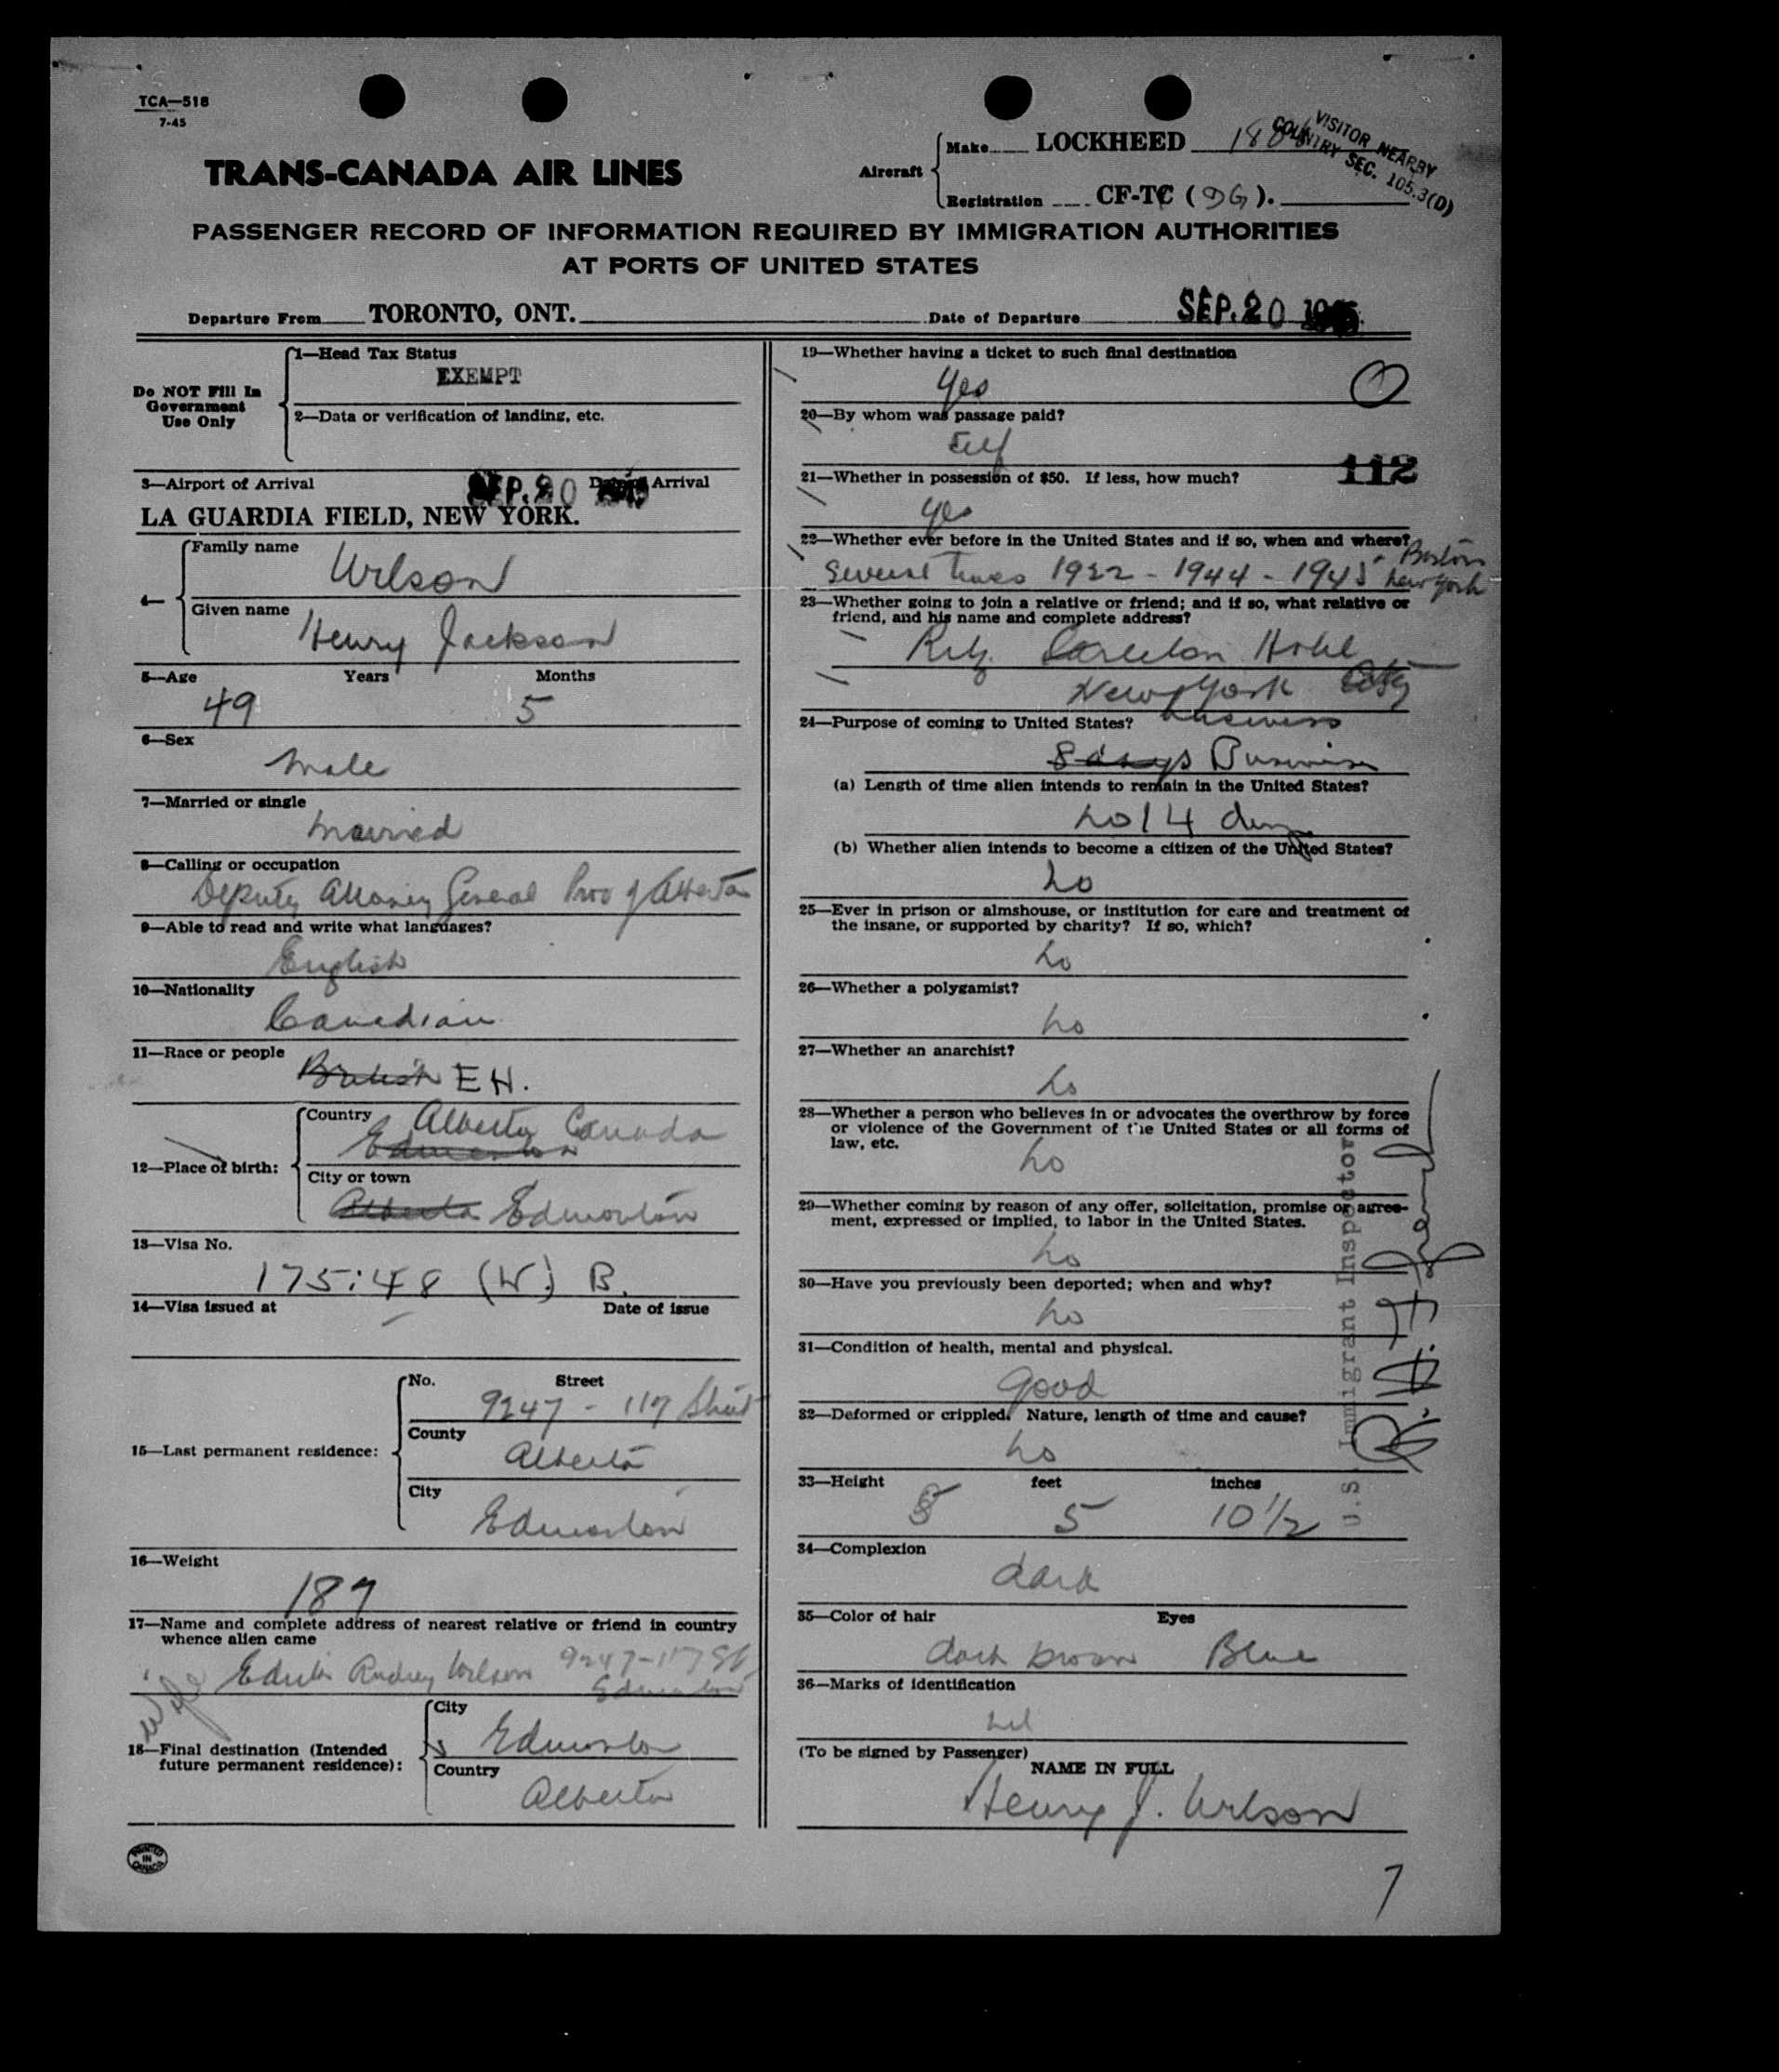 TCA—518
7-45
TRANS-CANADA AIR LINES
Aircraft
Make LOCKHEED
VISITOR NEARBY
COUNTRY SEC. 105.3(D)
Registration CF-TC (DG).
PASSENGER RECORD OF INFORMATION REQUIRED BY IMMIGRATION AUTHORITIES
AT PORTS OF UNITED STATES
Departure From TORONTO, ONT. Date of Departure SEP. 20
Do NOT Fill In
Government
Use Only
1—Head Tax Status
EXEMPT
2—Data or verification of landing, etc.
3—Airport of Arrival SEP. 20 Date of Arrival
LA GUARDIA FIELD, NEW YORK.
4—
Family name
Wilson
Given name
Henry Jackson
5—Age Years Months
49 5
6—Sex
Male
7—Married or single
Married
8—Calling or occupation
Deputy Attorney General Prov of Alberta
9—Able to read and write what languages?
English
10—Nationality
Canadian
11—Race or people
British EH.
12—Place of birth:
Country Alberta Canada
Edmonton
City or town
Alberta Edmonton
13—Visa No.
175:48 (W) B.
14—Visa issued at Date of issue
15—Last permanent residence:
No. Street
9247 - 117 Street
County
Alberta
City
Edmonton
16—Weight
187
17—Name and complete address of nearest relative or friend in country
whence alien came
Wife Edith Audrey Wilson 9247-117 St
Edmonton
18—Final destination (Intended
future permanent residence):
City
Edmonton
Country
Alberta
PRINTED
IN
CANADA
19—Whether having a ticket to such final destination
Yes
0
20—By whom was passage paid?
Self
21—Whether in possession of $50. If less, how much? 112
Yes
22—Whether ever before in the United States and if so, when and where?
Several times 1922 - 1944 - 1945 - Boston
New York
23—Whether going to join a relative or friend; and if so, what relative or
friend, and his name and complete address?
Ritz Carleton Hotel
New York City
24—Purpose of coming to United States? business
8 days Business
(a) Length of time alien intends to remain in the United States?
no 14 days
(b) Whether alien intends to become a citizen of the United States?
no
25—Ever in prison or almshouse, or institution for care and treatment of
the insane, or supported by charity? If so, which?
no
26—Whether a polygamist?
no
27—Whether an anarchist?
no
28—Whether a person who believes in or advocates the overthrow by force
or violence of the Government of the United States or all forms of
law, etc.
no
29—Whether coming by reason of any offer, solicitation, promise or agree-
ment, expressed or implied, to labor in the United States.
no
30—Have you previously been deported; when and why?
no
31—Condition of health, mental and physical.
good
32—Deformed or crippled. Nature, length of time and cause?
no
33—Height feet inches
5 10 1/2
U.S. Immigrant Inspector
34—Complexion
dark
35—Color of hair Eyes
dark brown Blue
36—Marks of identification
nil
(To be signed by Passenger)
NAME IN FULL
Henry J. Wilson
7